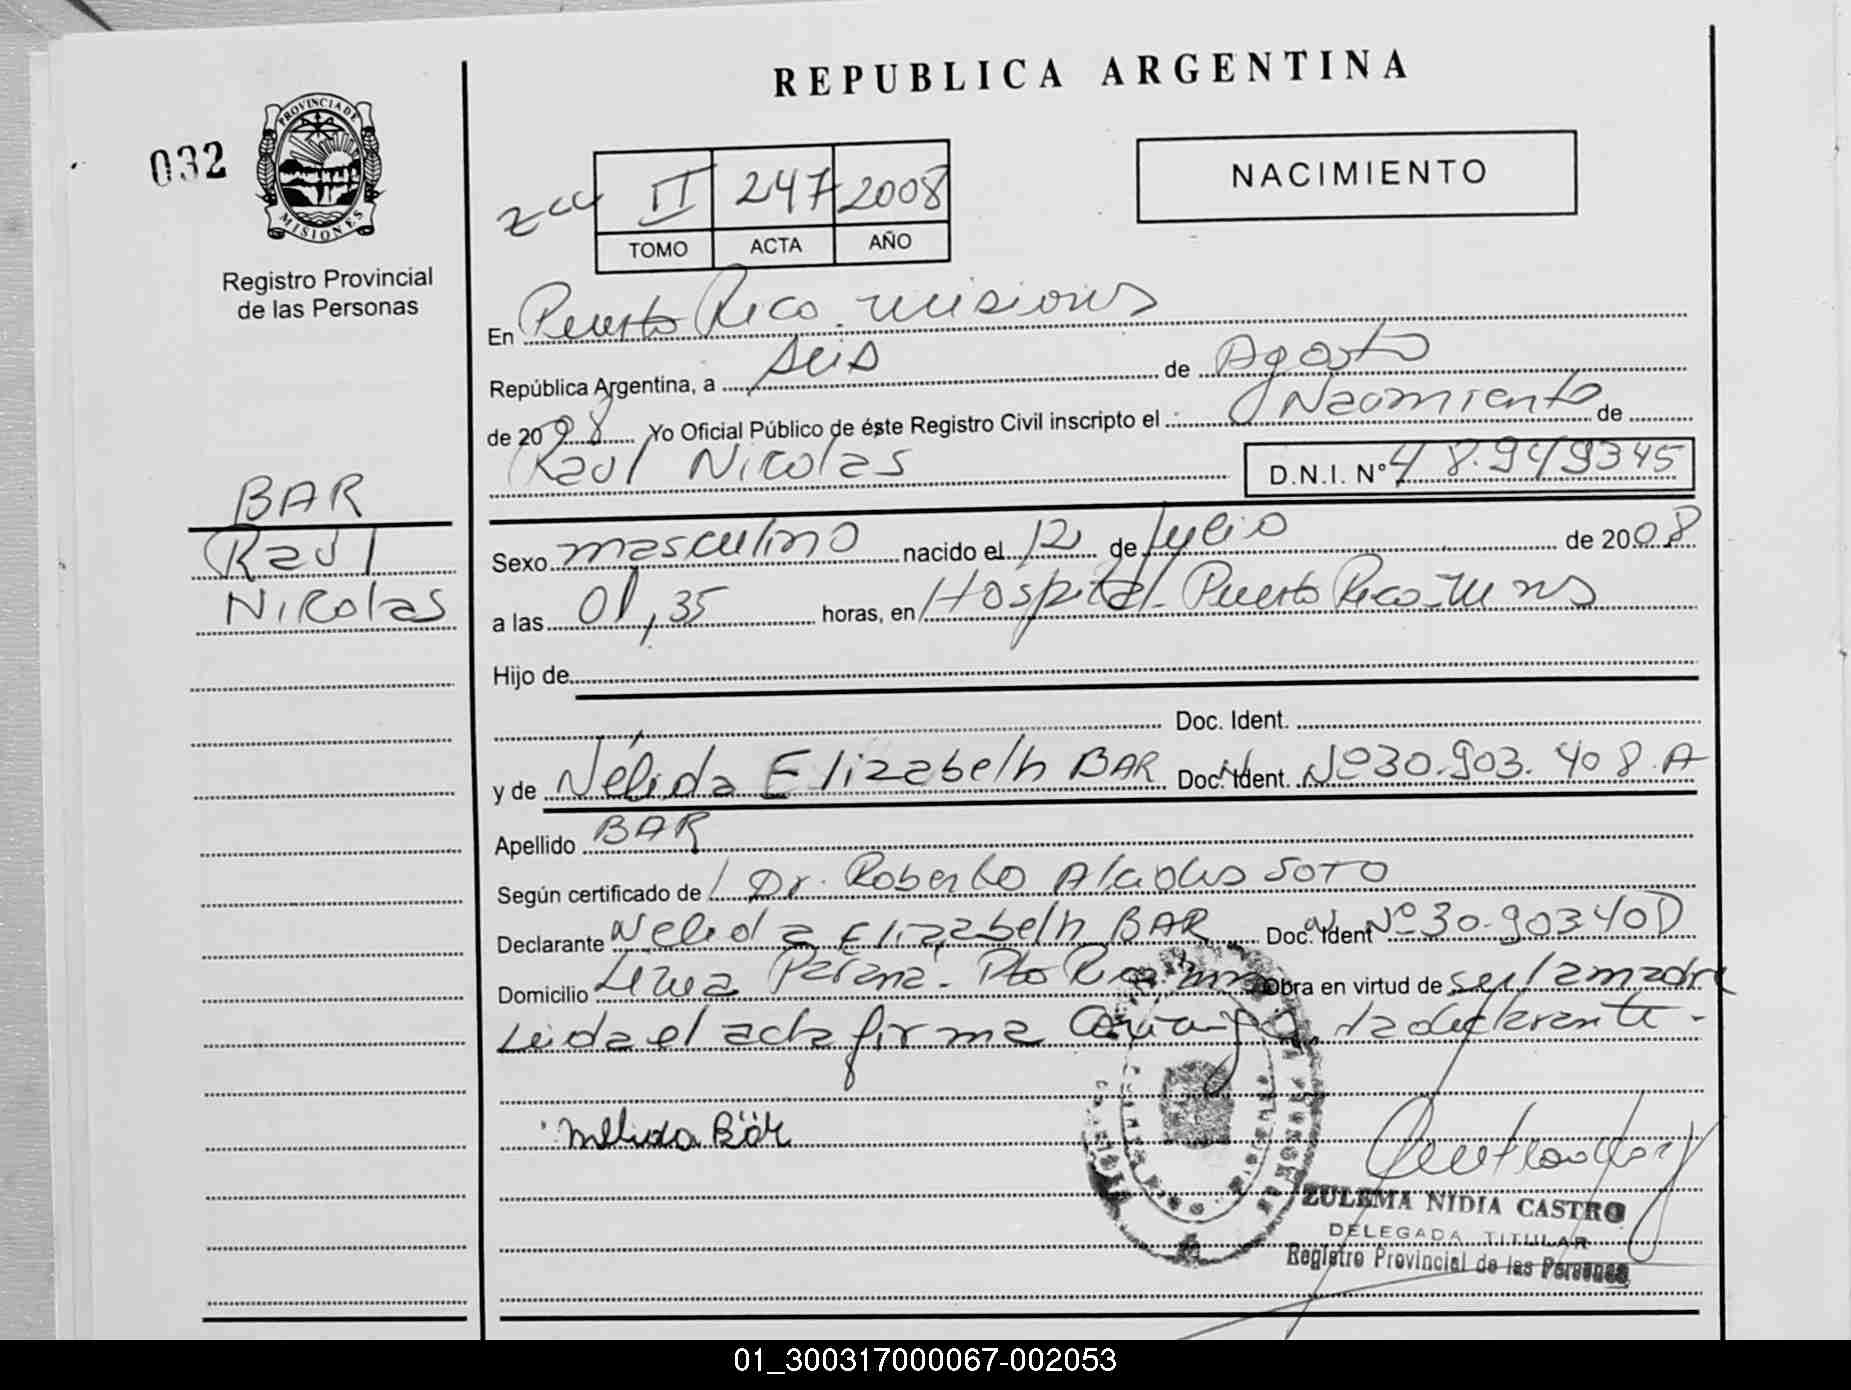 REPUBLICA ARGENTINA
032
PROVINCIA DE
MISIONES
Registro Provincial
de las Personas
II 247 2008
TOMO ACTA AÑO
NACIMIENTO
En Puerto Rico. misiones
República Argentina, a seis de Agosto
de 2008 Yo Oficial Público de éste Registro Civil inscripto el Nacimiento de
Raul Nicolas D.N.I. Nº 48.949345
BAR
Raul
Nicolas
Sexo masculino nacido el 12 de Julio de 2008
a las 01,35 horas, en Hospital. Puerto Rico
Hijo de
Doc. Ident.
y de Nélida Elizabeth BAR Doc. Ident. Nº 30.903.408.A
Apellido BAR
Según certificado de Dr. Roberto Alcides SOTO
Declarante Nelida Elizabeth BAR Doc. Ident Nº 30.903.40
Domicilio Linea Paraná. Pto Rico Obra en virtud de ser la madre
Leida el acta firma Conmigo la declarante.
ZULEMA NIDIA CASTRO
DELEGADA TITULAR
Registro Provincial de las Personas
01_300317000067-002053